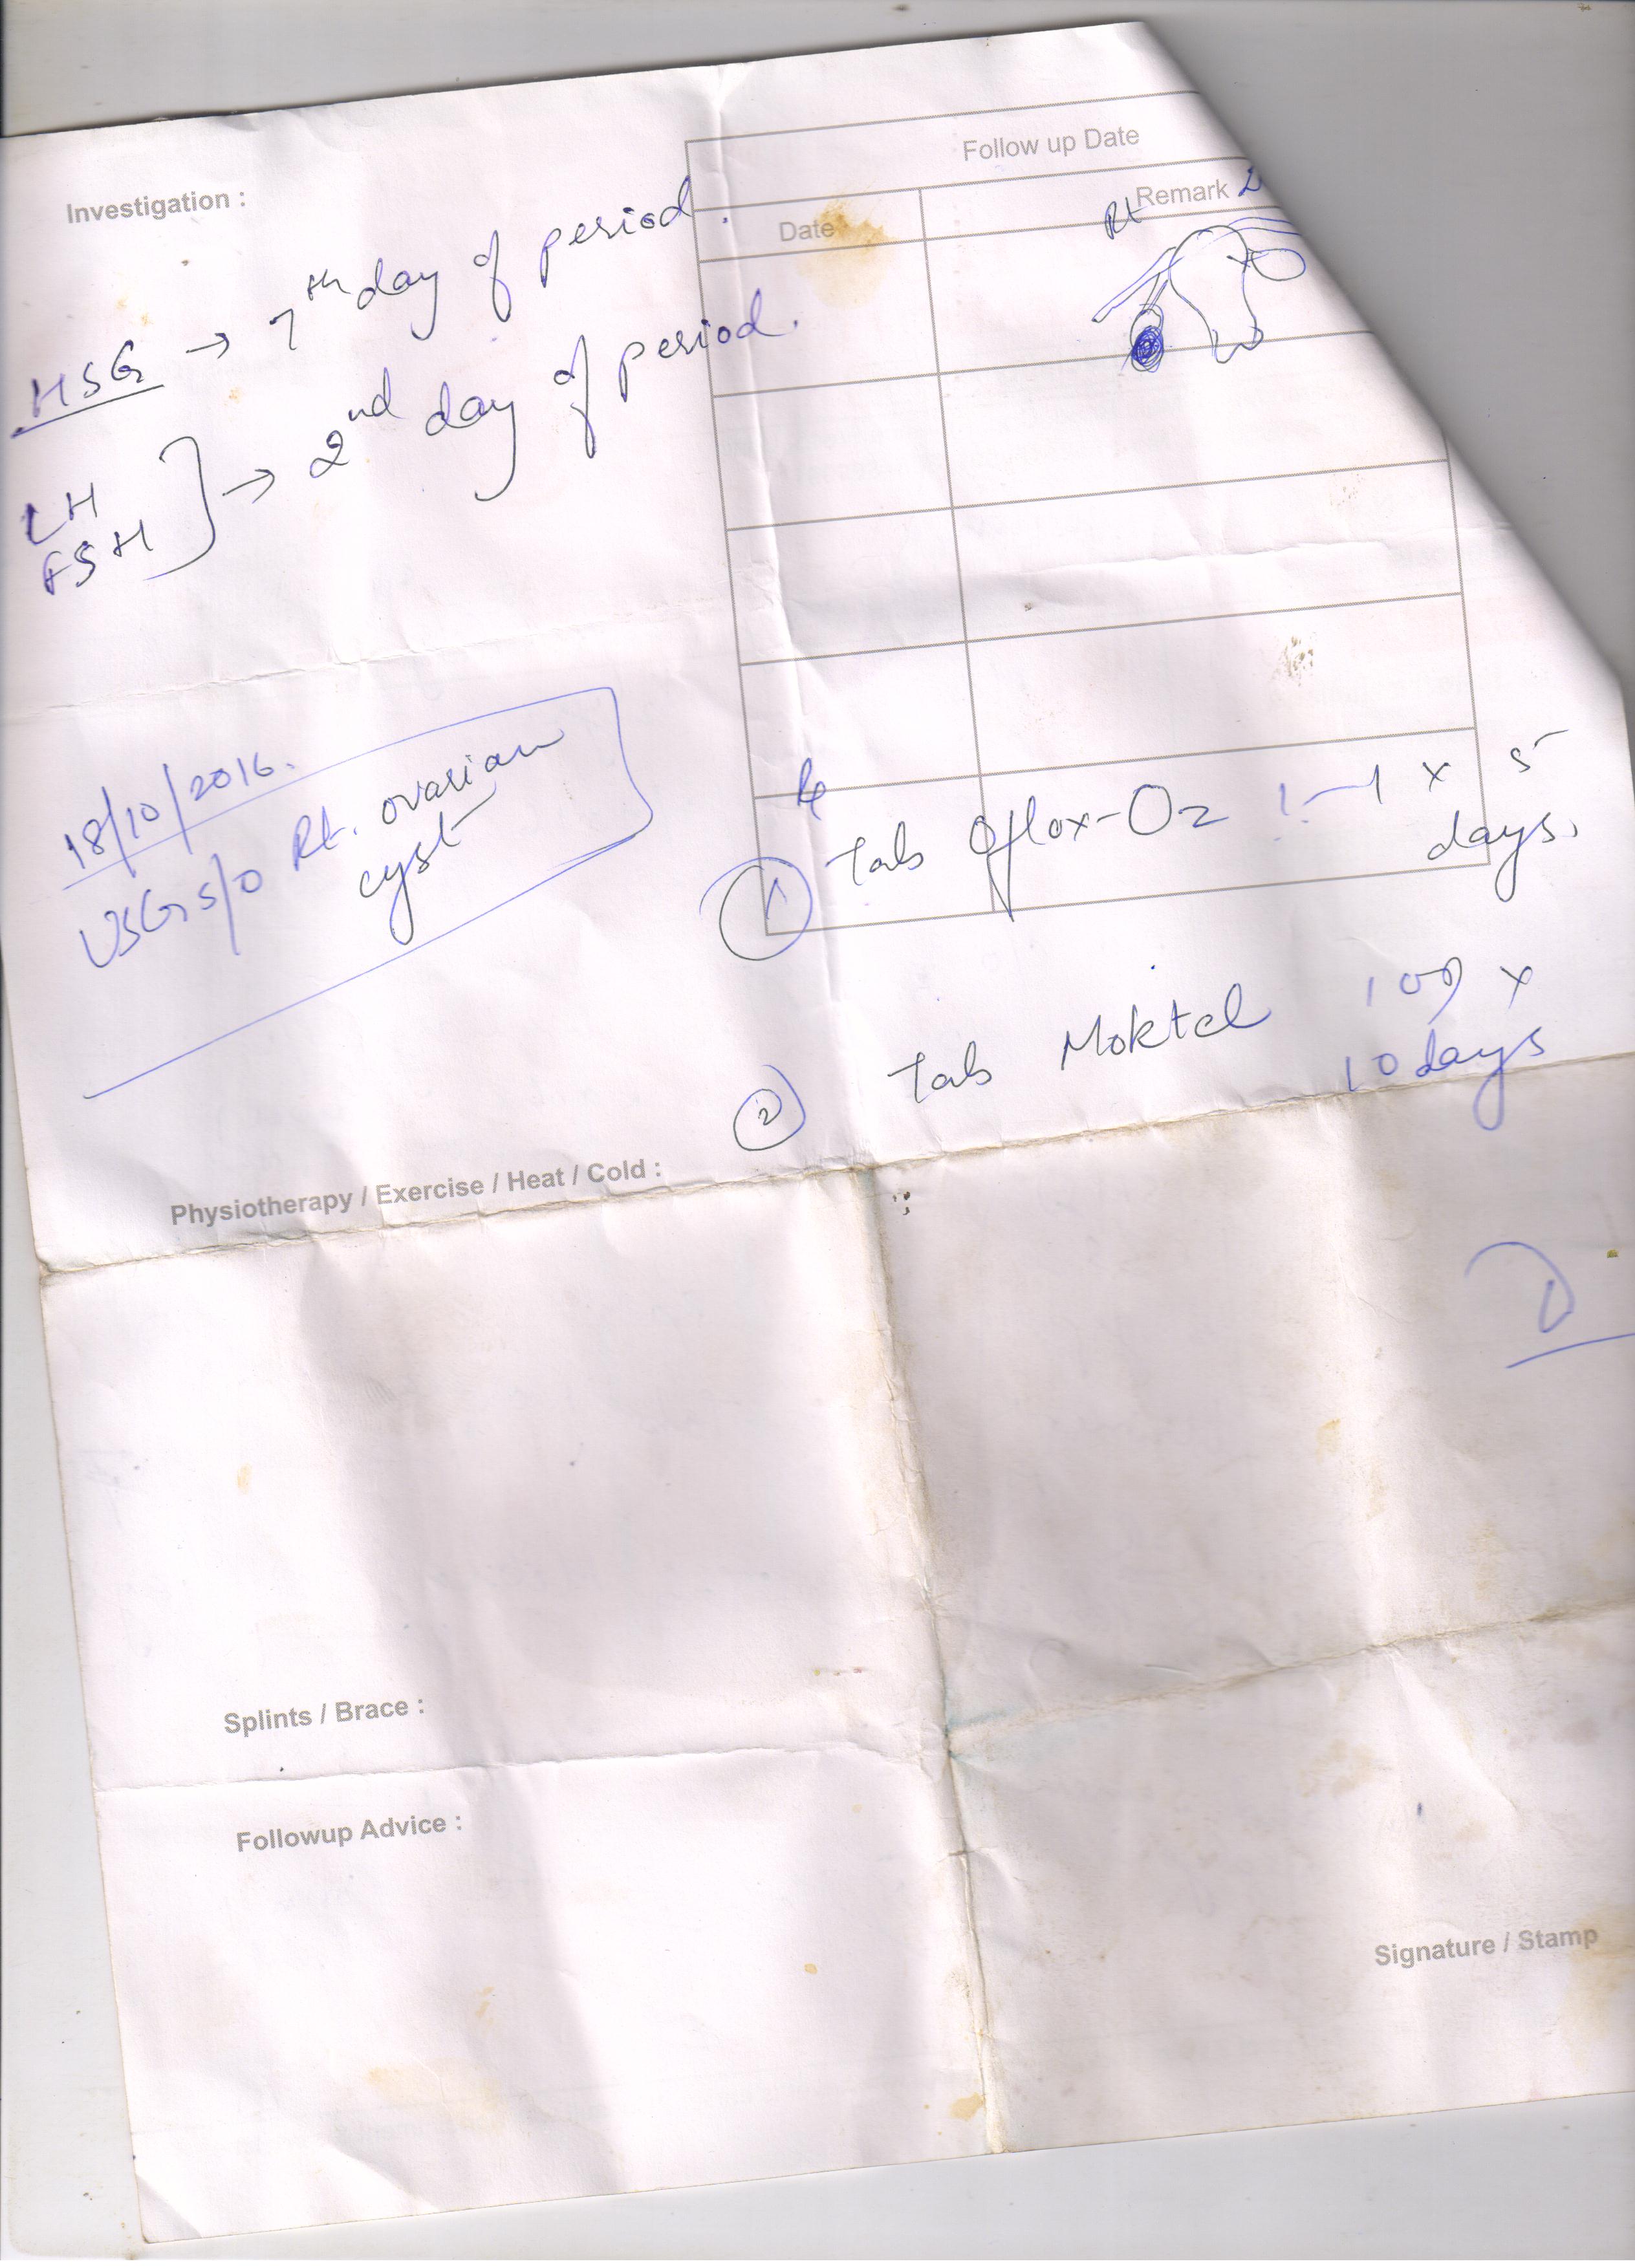 Follow up Date
Investigation :
Date Remark
Rt
HSG → 7th day of period.
LH
FSH } → 2nd day of period.
18/10/2016.
USG s/o Rt. ovarian
cyst
Rx
① Tab Oflox-Oz 1-1 x 5
days.
② Tab Moktel 1 OD x
10 days
Physiotherapy / Exercise / Heat / Cold :
Splints / Brace :
Followup Advice :
Signature / Stamp